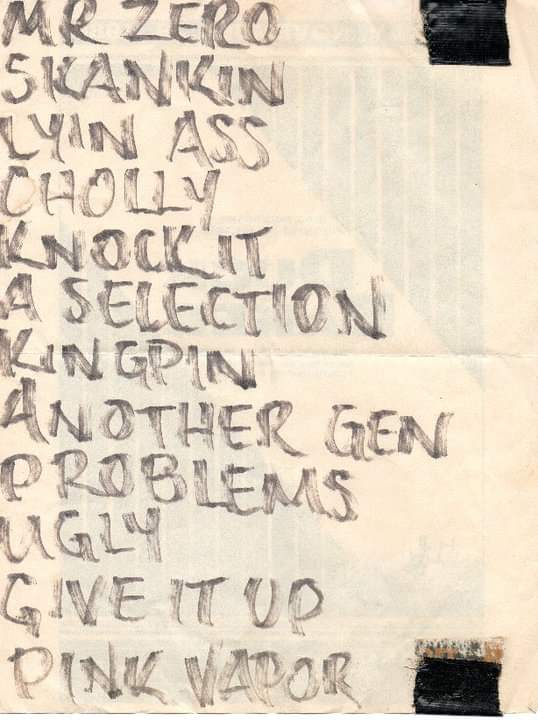 MR ZERO
SKANKIN
LYIN ASS
CHOLLY
KNOCK IT
A SELECTION
KINGPIN
ANOTHER GEN
PROBLEMS
UGLY
GIVE IT UP
PINK VAPOR